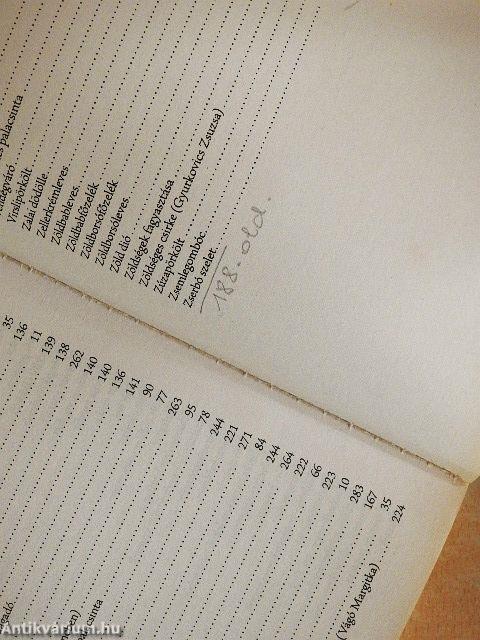 palacsinta
Virslipörkölt
Zalai dödölle
Zellerkrémleves
Zöldbableves
Zöldbabfőzelék
Zöldborsófőzelék
Zöldborsóleves
Zöld dió
Zöldségek fagyasztása
Zöldséges csirke (Gyurkovics Zsuzsa)
Zúzapörkölt
Zsemlegombóc
Zserbó szelet
188. old.
35
136
11
139
138
262
140
140
136
141
90
77
263
95
78
244
221
271
84
244
264
222
66
223
10
283
167
35
224
(Vágó Margitka)
Antikvárium.hu